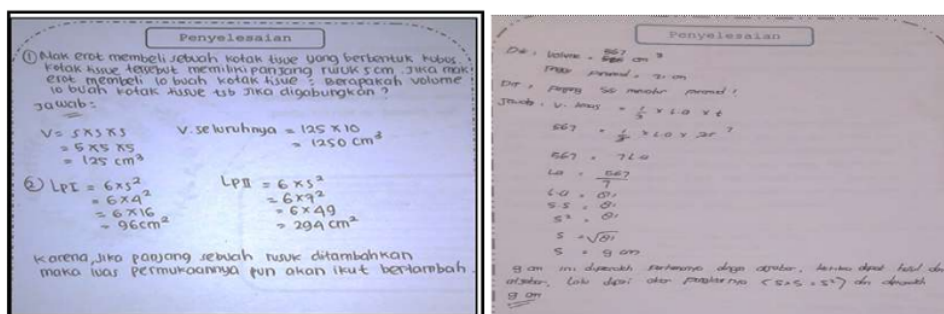 Penyelesaian
① Mak erot membeli sebuah kotak tisue yang berbentuk kubus.
kotak tissue tersebut memiliki panjang rusuk 5 cm. Jika mak
erot membeli 10 buah kotak tisue : Berapakah volume
10 buah kotak tisue tsb jika digabungkan ?
Jawab :
V = s x s x s
= 5 x 5 x 5
= 125 cm³
V. seluruhnya = 125 x 10
= 1250 cm³
② LPI = 6 x s²
= 6 x 4²
= 6 x 16
= 96 cm²
LPII = 6 x s²
= 6 x 7²
= 6 x 49
= 294 cm²
Karena, Jika panjang sebuah rusuk ditambahkan
maka luas permukaannya pun akan ikut bertambah.
Penyelesaian
Dik : Volume = 567 cm³
Tinggi = 21 cm
Dit :
Jawab : V. = 1/3 x L.a x t
567 = 1/3 x L.a x 21
567 = 7 L.a
L.a = 567/7
L.a = 81
s.s = 81
s² = 81
s = √81
s = 9 cm
9 cm ini diperoleh
(s x s = s²)
9 cm